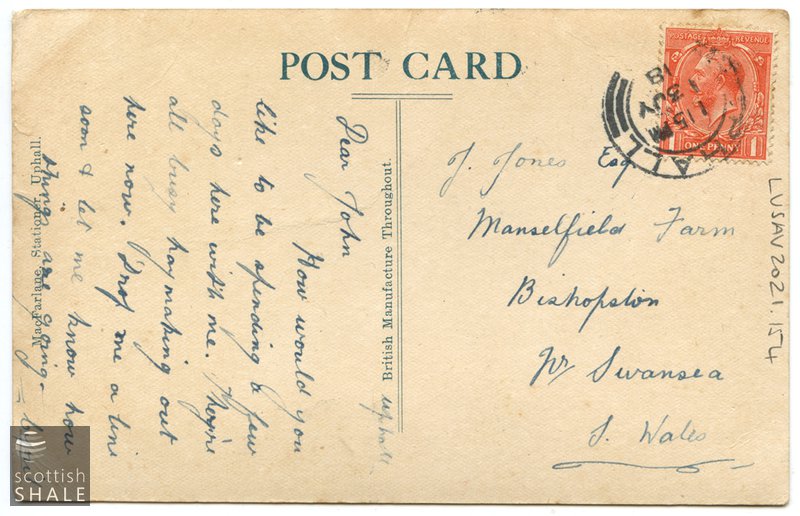 POST CARD
POSTAGE REVENUE
ONE PENNY
1 1
1 15 PM
3 JY
18
ALL
Dear John
How would you
like to be spending a few
days here with me. They're
all busy haymaking out
here now. Drop me a line
soon & let me know how
things are going.
Uphall
MacFarlane, Stationer, Uphall.
British Manufacture Throughout.
J. Jones Esq
Manselfield Farm
Bishopston
Nr Swansea
S. Wales
LUSAV2021.154
scottish
SHALE